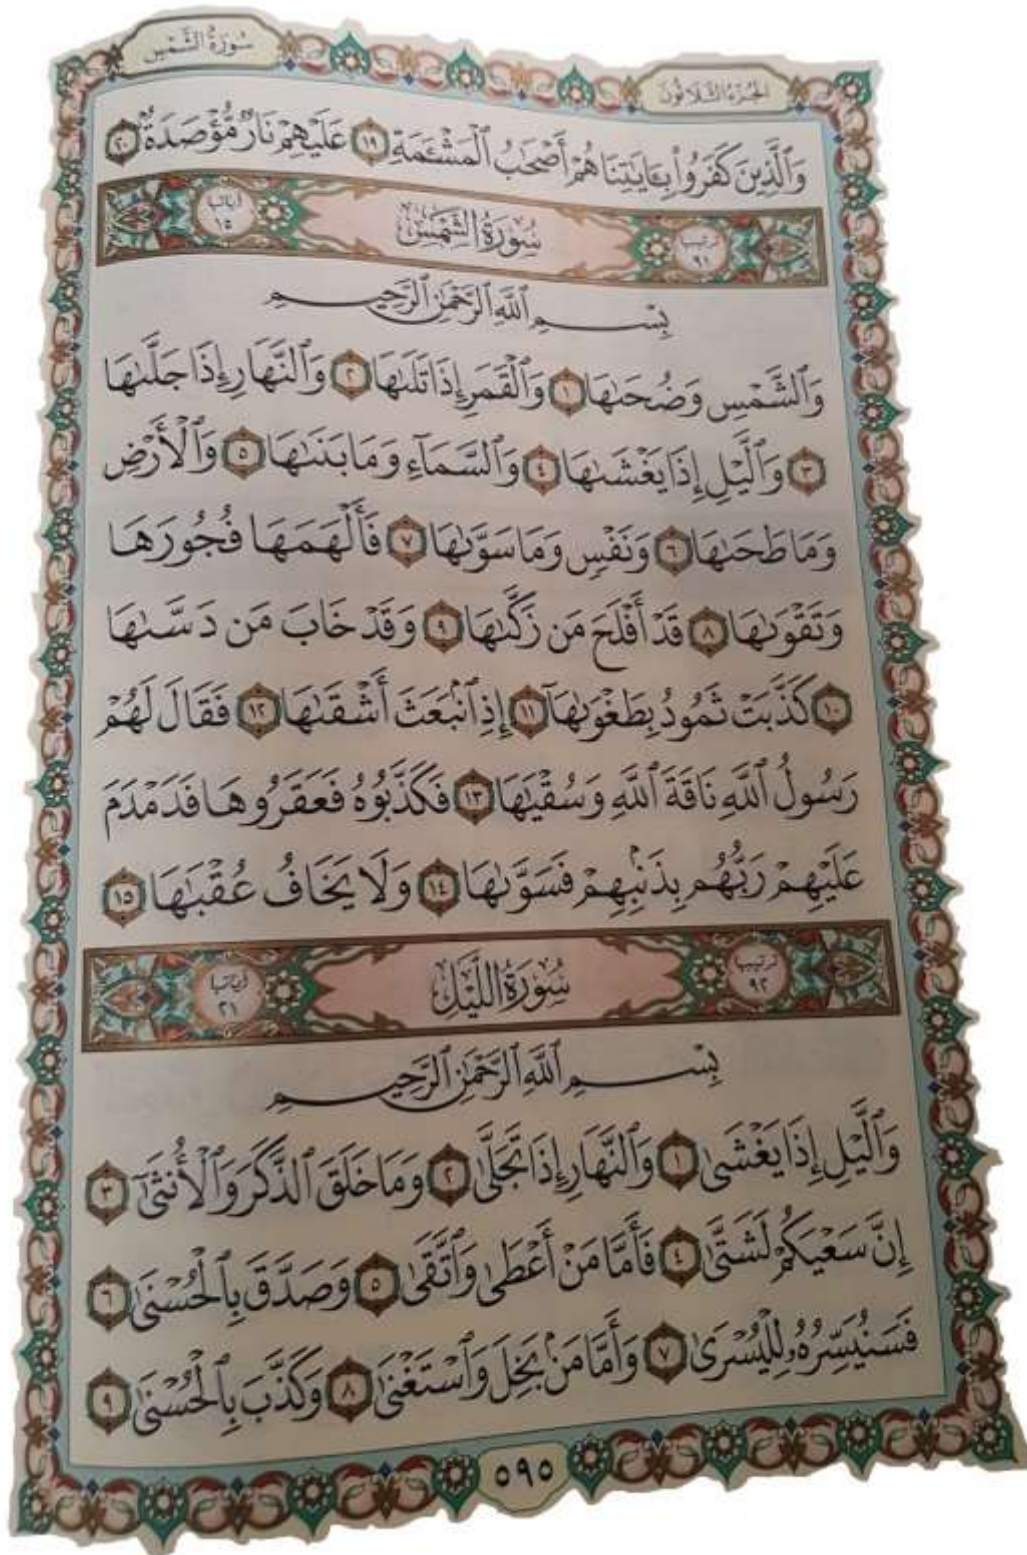 سُورَةُ الشَّمْسِ
الجُزْءُ الثَّلَاثُونَ
وَٱلَّذِينَ كَفَرُوا۟ بِـَٔايَٰتِنَا هُمْ أَصْحَٰبُ ٱلْمَشْـَٔمَةِ ١٩ عَلَيْهِمْ نَارٌ مُّؤْصَدَةٌۢ ٢٠
ترتيبها ٩١ سُورَةُ الشَّمْسِ آياتها ١٥
بِسْمِ ٱللَّهِ ٱلرَّحْمَٰنِ ٱلرَّحِيمِ
وَٱلشَّمْسِ وَضُحَىٰهَا ١ وَٱلْقَمَرِ إِذَا تَلَىٰهَا ٢ وَٱلنَّهَارِ إِذَا جَلَّىٰهَا
٣ وَٱلَّيْلِ إِذَا يَغْشَىٰهَا ٤ وَٱلسَّمَآءِ وَمَا بَنَىٰهَا ٥ وَٱلْأَرْضِ
وَمَا طَحَىٰهَا ٦ وَنَفْسٍ وَمَا سَوَّىٰهَا ٧ فَأَلْهَمَهَا فُجُورَهَا
وَتَقْوَىٰهَا ٨ قَدْ أَفْلَحَ مَن زَكَّىٰهَا ٩ وَقَدْ خَابَ مَن دَسَّىٰهَا
١٠ كَذَّبَتْ ثَمُودُ بِطَغْوَىٰهَآ ١١ إِذِ ٱنۢبَعَثَ أَشْقَىٰهَا ١٢ فَقَالَ لَهُمْ
رَسُولُ ٱللَّهِ نَاقَةَ ٱللَّهِ وَسُقْيَٰهَا ١٣ فَكَذَّبُوهُ فَعَقَرُوهَا فَدَمْدَمَ
عَلَيْهِمْ رَبُّهُم بِذَنۢبِهِمْ فَسَوَّىٰهَا ١٤ وَلَا يَخَافُ عُقْبَٰهَا ١٥
ترتيبها ٩٢ سُورَةُ اللَّيْلِ آياتها ٢١
بِسْمِ ٱللَّهِ ٱلرَّحْمَٰنِ ٱلرَّحِيمِ
وَٱلَّيْلِ إِذَا يَغْشَىٰ ١ وَٱلنَّهَارِ إِذَا تَجَلَّىٰ ٢ وَمَا خَلَقَ ٱلذَّكَرَ وَٱلْأُنثَىٰٓ ٣
إِنَّ سَعْيَكُمْ لَشَتَّىٰ ٤ فَأَمَّا مَنْ أَعْطَىٰ وَٱتَّقَىٰ ٥ وَصَدَّقَ بِٱلْحُسْنَىٰ ٦
فَسَنُيَسِّرُهُۥ لِلْيُسْرَىٰ ٧ وَأَمَّا مَنۢ بَخِلَ وَٱسْتَغْنَىٰ ٨ وَكَذَّبَ بِٱلْحُسْنَىٰ ٩
٥٩٥